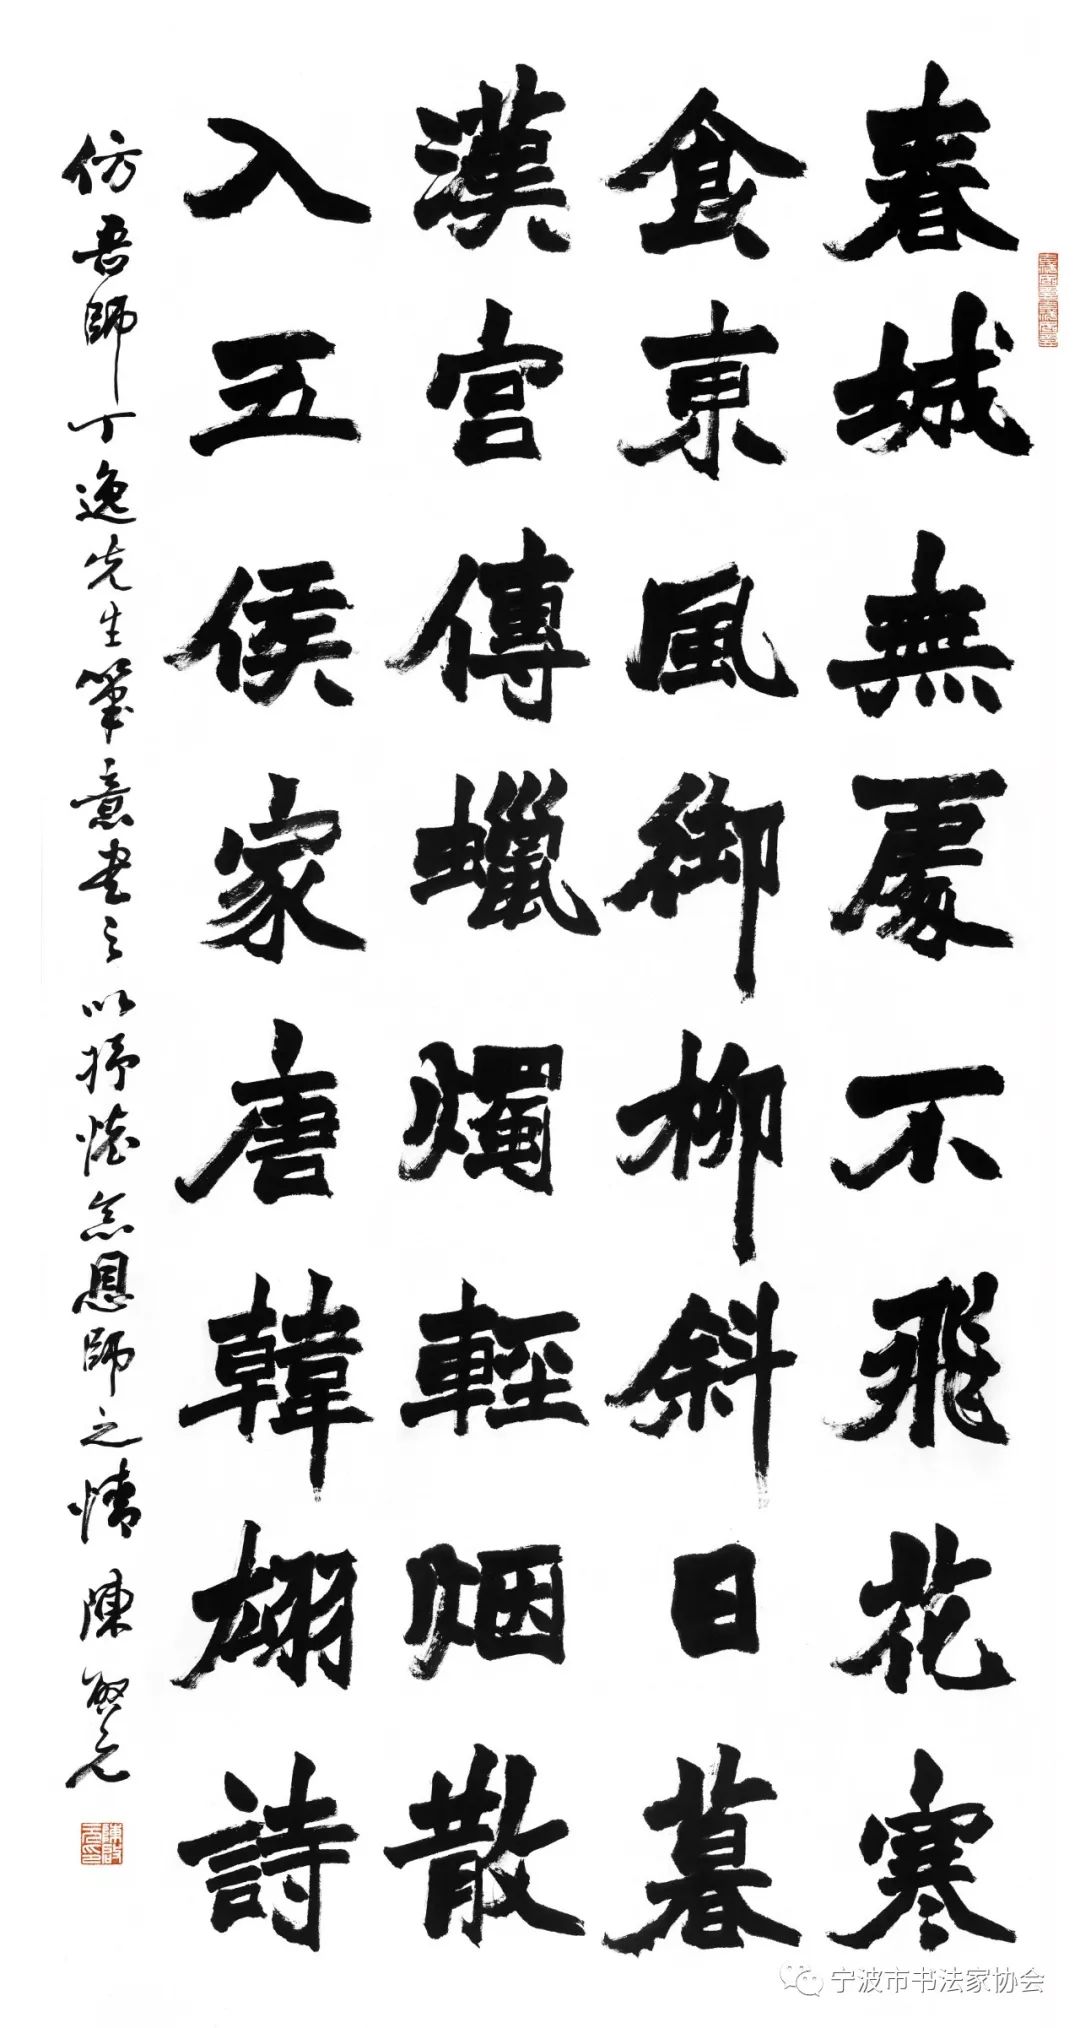 春城無處不飛花寒
食東風御柳斜日暮
漢宮傳蠟燭輕烟散
入五侯家唐韓翃詩
仿吾師丁逸先生筆意書之以抒懷念恩師之情陳啟元
宁波市书法家协会